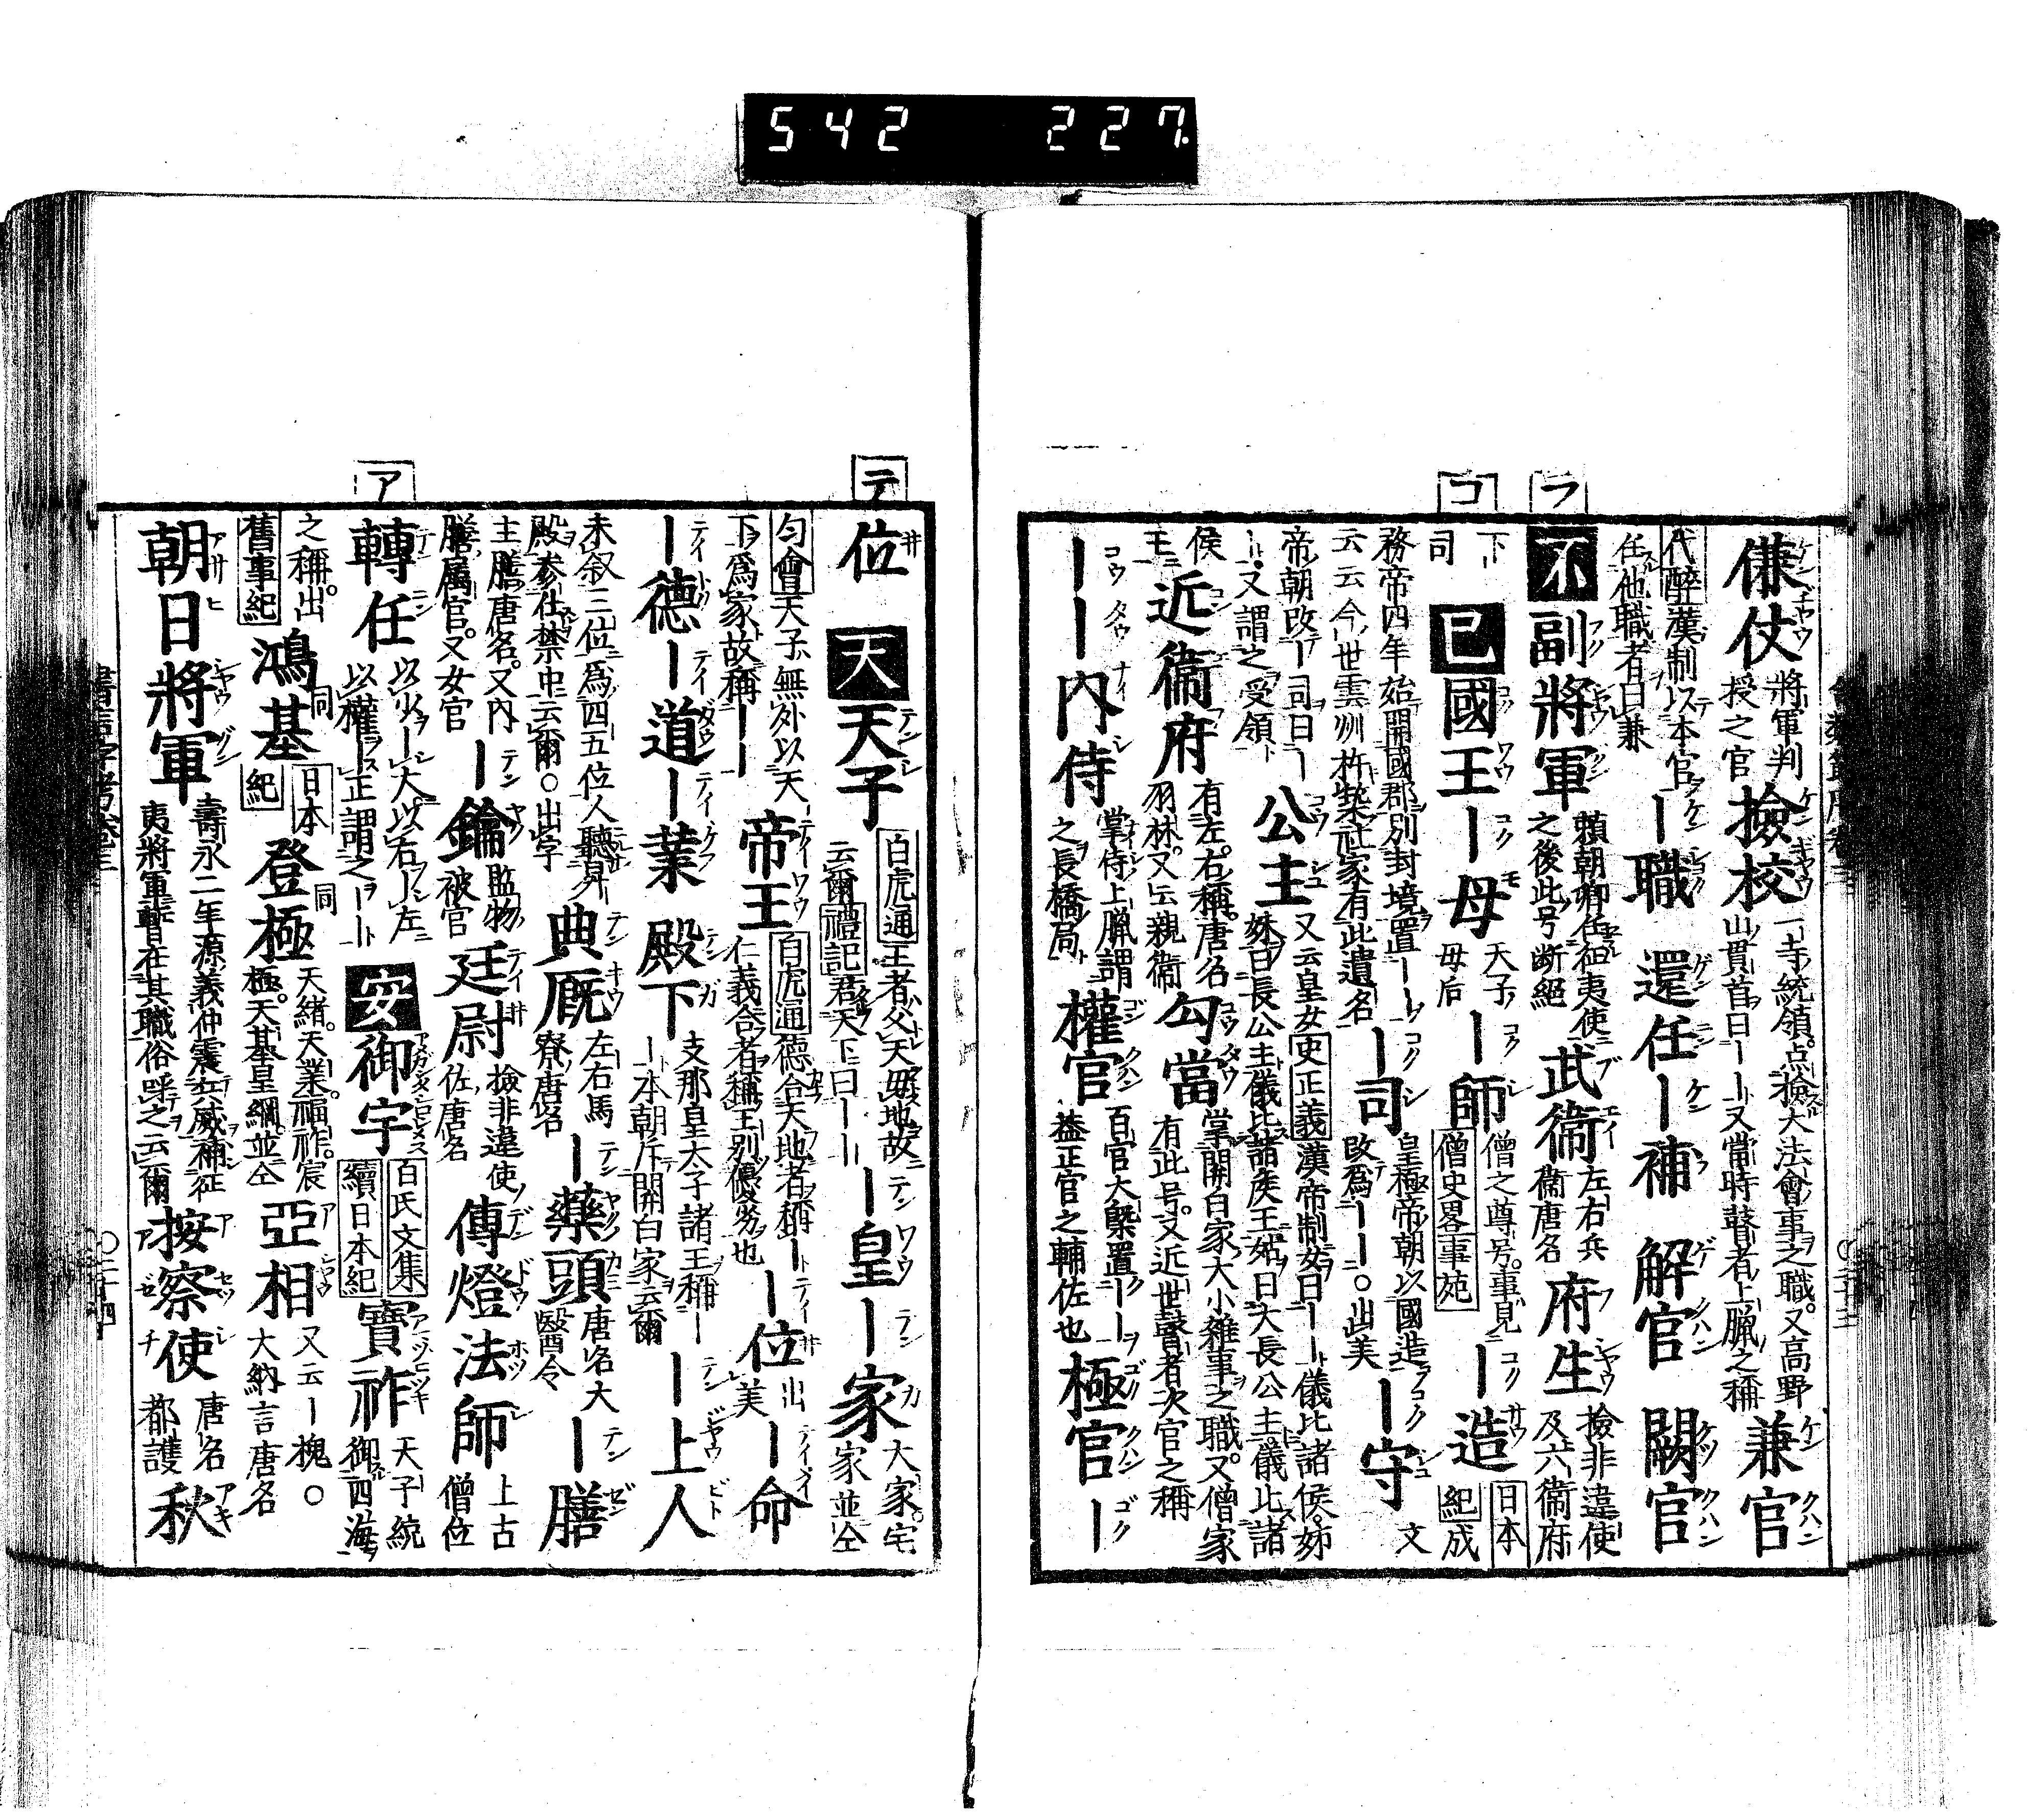 542 227.
フ
コ
傔仗 將軍判授之官
撿校 一寺統領点撿大法會事之職又高野山貫首曰——又當時瞽者上臈之稱
兼官
代醉漢制以本官任他職者曰兼
—職
還任
—補
解官
闕官
不
副將軍 賴朝卿任征夷使之後此号断絕
武衞 左右兵衞唐名
府生 撿非違使及六衞府下司
已
國王
—母 天子母后
—師 僧之尊号事見僧史畧事苑
—造 日本紀成務帝四年始開國郡別封境置——云云今世雲州杵築社家有此遺名
—司 皇極帝朝以國造改爲——○出美
—守 文帝朝改—司曰—又謂之受領
公主 又云皇女史正義漢帝制女曰——儀比諸侯姉妹曰長公主儀比諸矦王姑曰大長公主儀比諸侯王
近衞府 有左右稱唐名羽林又云親衞
勾當 掌開白家大小雜事之職又僧家有此号又近世瞽者次官之稱
——內侍 掌侍上臈謂之長橋局
權官 百官大槩置——益正官之輔佐也
極官
—
テ
ア
位
天
天子 白虎通王者父天毋地故云爾禮記君天下曰——
—皇
—家 大家宅家並仝
匀會天子無外以天下爲家故稱——
帝王 白虎通德合天地者稱—仁義合者稱王別優劣也
—位 出美
—命
—德
—道
—業
殿下 支那皇太子諸王稱——本朝斥開白家云爾
—上人
未叙三位爲四五位人聽昇殿参仕禁中云爾○出字
典厩 左右馬寮唐名
—藥頭 唐名大醫令
—膳
主膳唐名又內膳属官又女官
—鑰 監物被官
廷尉 撿非違使佐唐名
傳燈法師 上古僧位
轉任 以少—大以右—左以權—正謂之——
安
御宇 百氏文集續日本紀
寶祚 天子統御四海之稱出舊事紀
鴻基 同日本紀
登極 同天緒天業福祚宸極天基皇綱並仝
亞相 又云—槐○大納言唐名
朝日將軍 壽永二年源義仲震兵威補征夷將軍暫在其職俗呼之云爾
按察使 唐名都護
秋